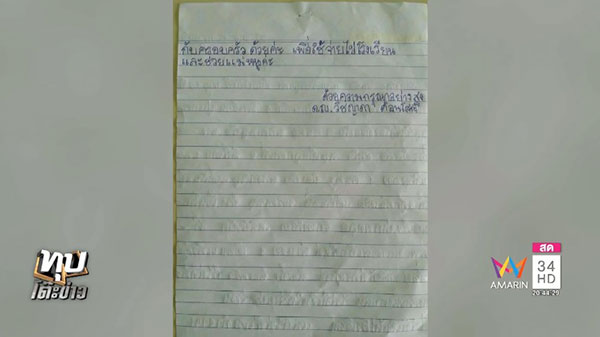 กับครอบครัว ด้วยค่ะ เพื่อใช้จ่ายไปโรงเรียน
และช่วยแม่หนูค่ะ
ด้วยความกรุณาอย่างสูง
ด.ญ. วิชญาดา
ทุบ
โต๊ะข่าว
AMARIN
สด
34
HD
20:44:29